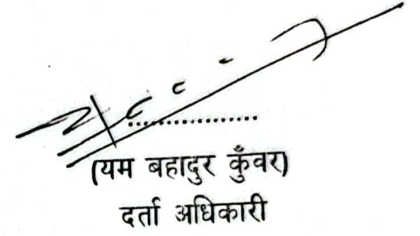 (यम बहादुर कुँवर)
दर्ता अधिकारी